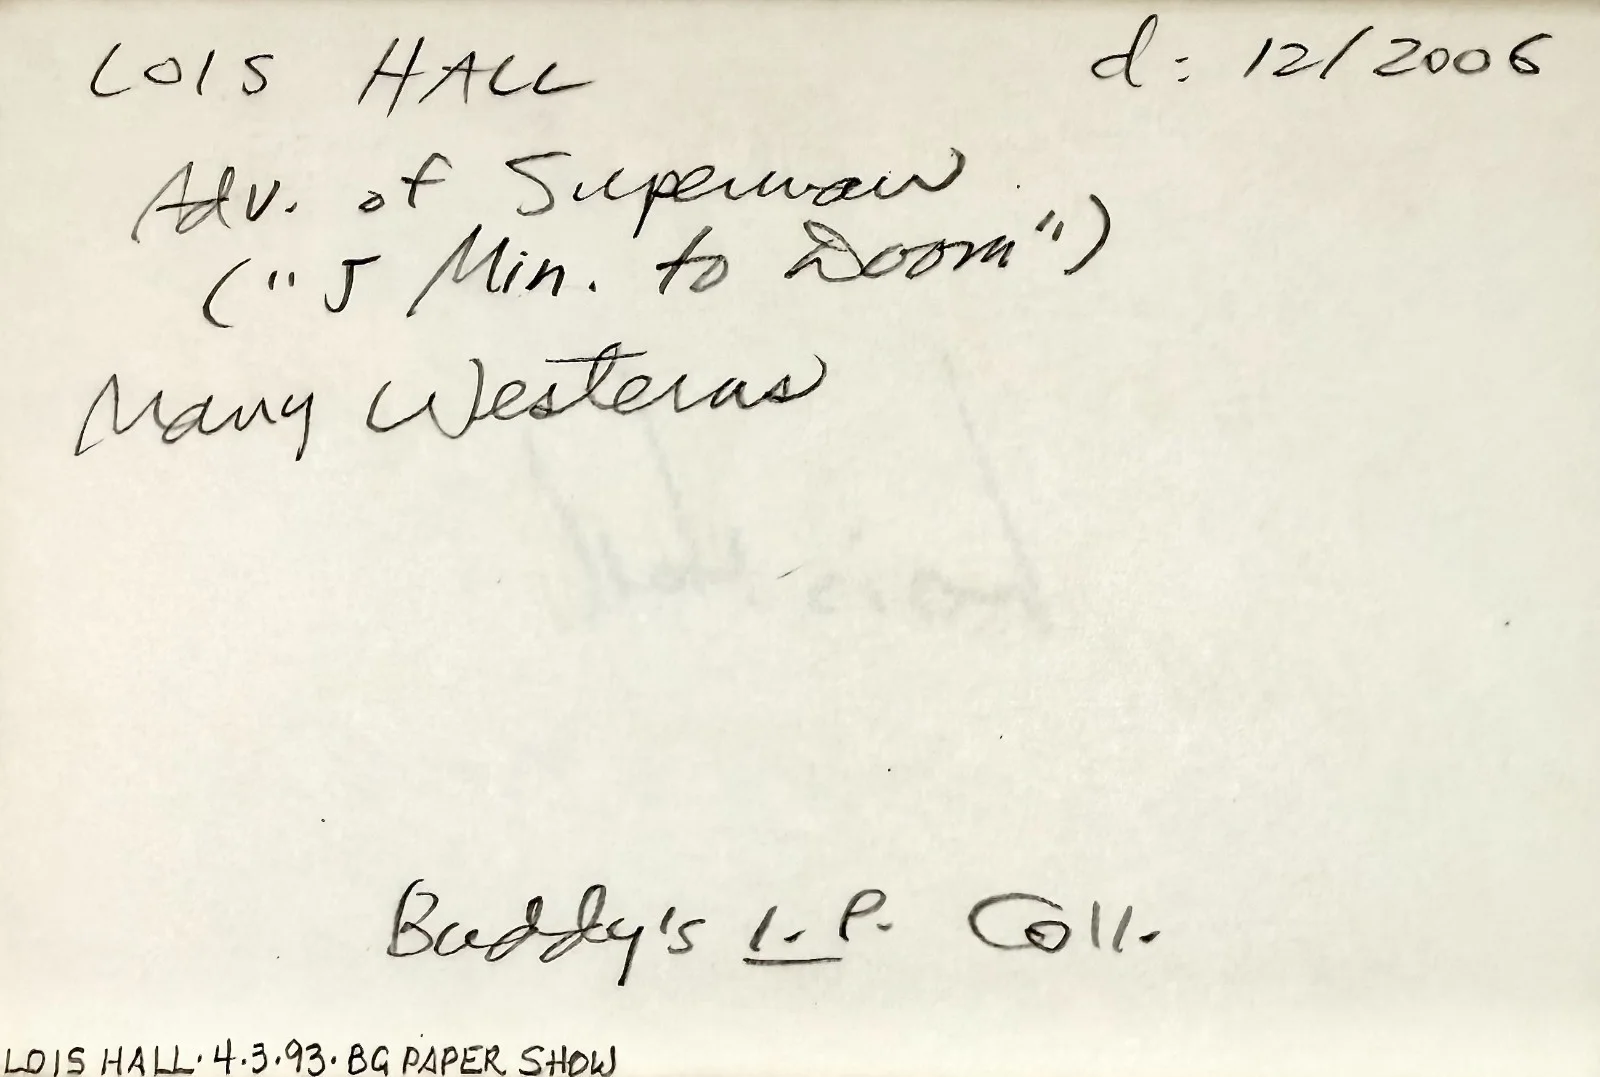 LOIS HALL d: 12/2006
Adv. of Superman
("5 Min. to Doom")
Many Westerns
Lois Hall
Buddy's I.P. Coll.
LOIS HALL·4·3·93·BG PAPER SHOW